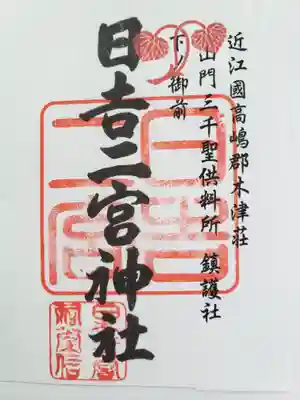 近江國高嶋郡木津荘
山門三千聖供料所 鎮護社
下ノ御前
日吉二宮神社